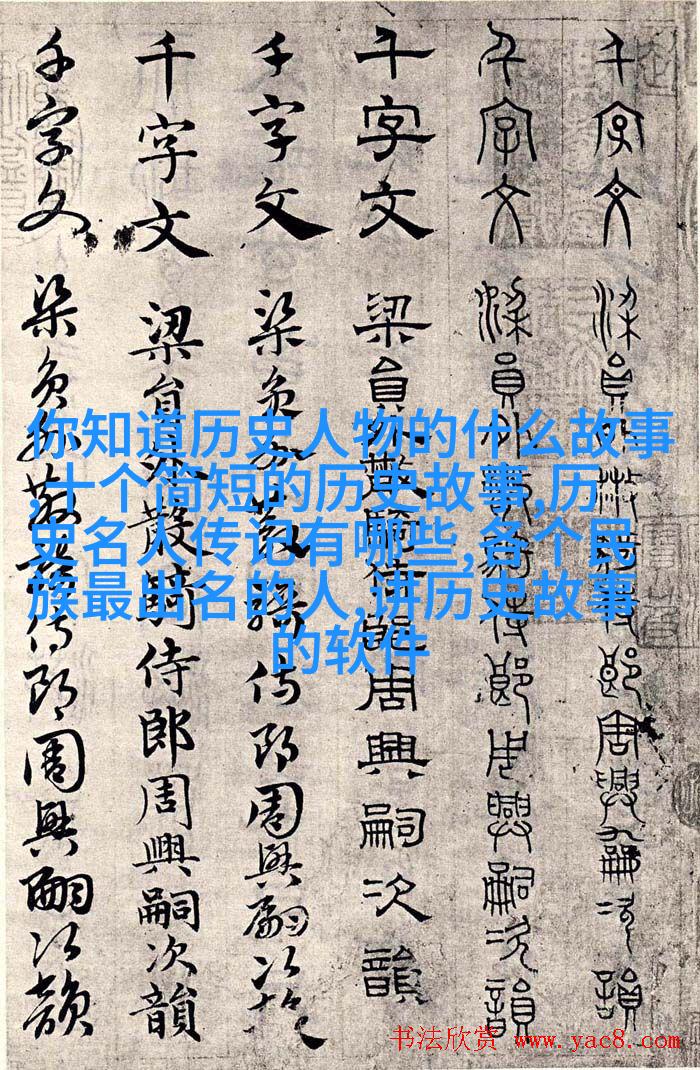 千字文 梁員外散騎侍郎周興嗣次韻
千字文 梁員外散騎侍郎周興嗣次韻
千字文 梁員外散騎侍郎周興嗣次韻
千字文 梁員外散騎侍郎周興嗣次韻
千字文 梁員外散騎侍郎周興嗣次韻
千字文 梁員外散騎侍郎周興嗣次韻
你知道历史人物的什么故事
,十个简短的历史故事,历
史名人传记有哪些,各个民
族最出名的人,讲历史故事
的软件
书法欣赏 www.yac8.com